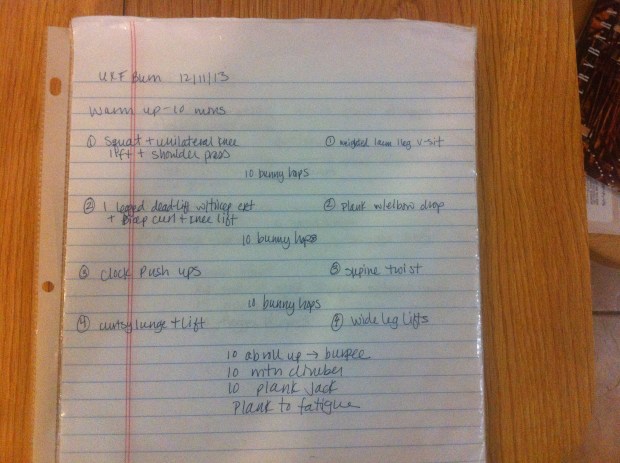 UXF Burn 12/11/13
Warm up - 10 mins
① Squat + unilateral knee
lift + shoulder press
① 1 arm 1 leg V-sit
10 bunny hops
② 1 legged dead-lift w/ hip ext
+ bicep curl + knee lift
② Plank w/elbow drop
10 bunny hops
③ Clock Push ups
③ supine twist
10 bunny hops
④ curtsy lunge + Lift
④ wide leg lifts
10 ab roll up → burpee
10 mtn climber
10 plank Jack
Plank to fatigue